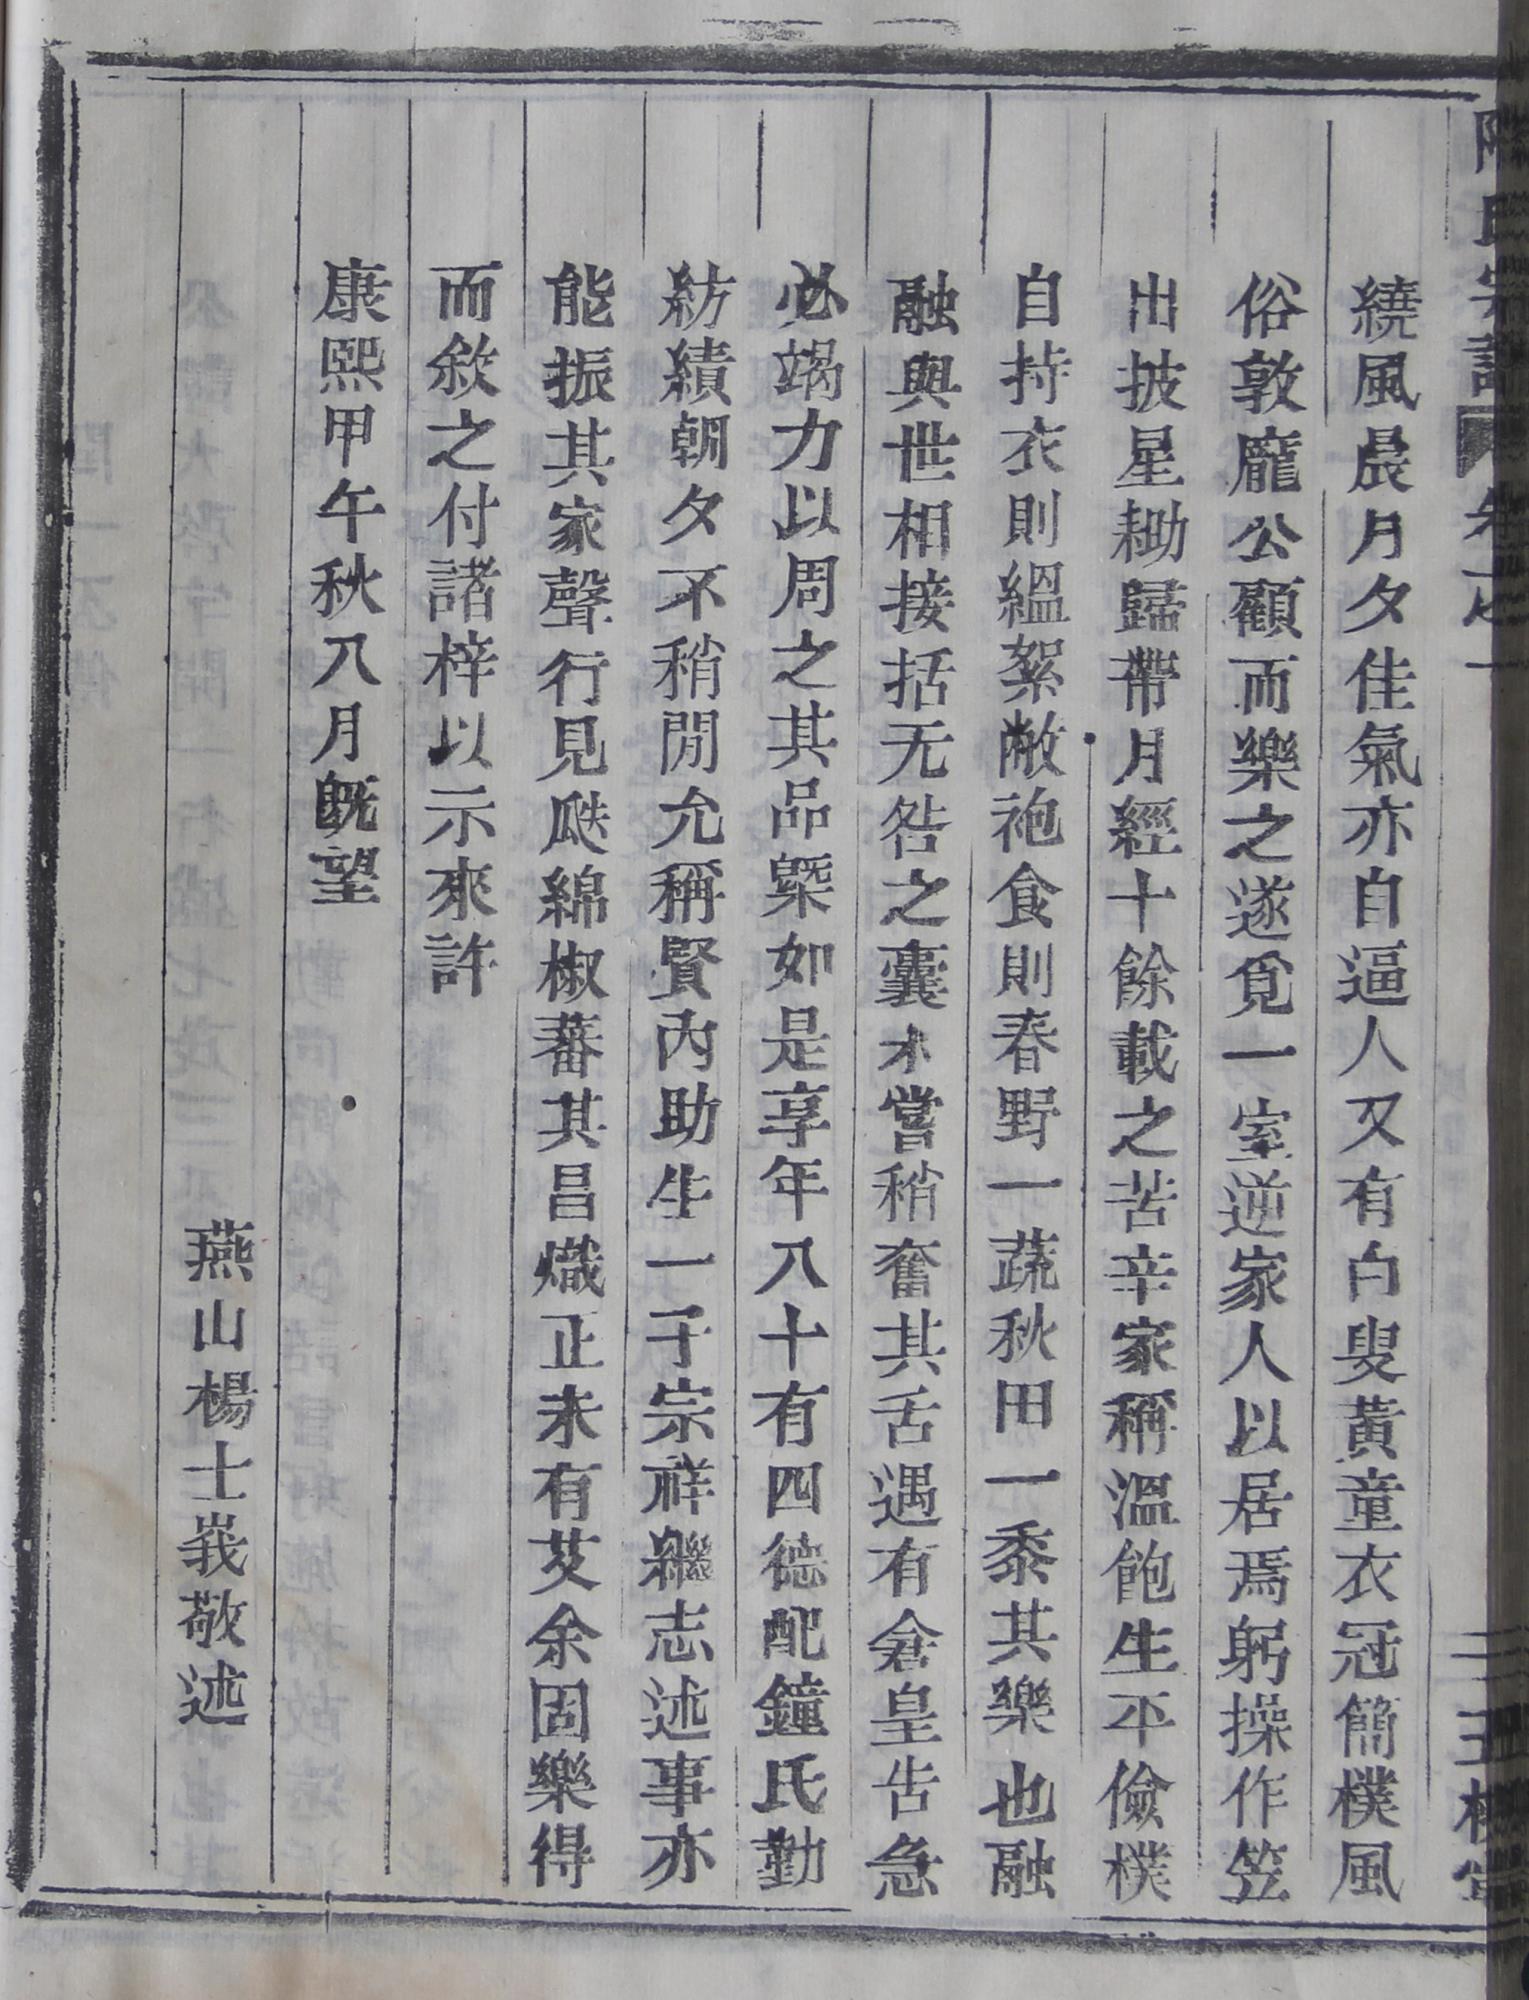 氏宗譜 卷之一
繞風晨月夕佳氣亦自逼人又有白叟黃童衣冠簡樸風
俗敦龐公顧而樂之遂覓一室逆家人以居焉躬操作笠
出披星耡歸帶月經十餘載之苦辛家稱溫飽生平儉樸
自持衣則縕絮敝袍食則春野一蔬秋田一黍其樂也融
融與世相接括无咎之囊未嘗稍奮其舌遇有倉皇告急
必竭力以周之其品槩如是享年八十有四德配鐘氏勤
紡績朝夕不稍閒允稱賢內助生一子宗祥繼志述事亦
能振其家聲行見瓞綿椒蕃其昌熾正未有艾余固樂得
而敘之付諸梓以示來許
康熙甲午秋八月既望
燕山楊士峩敬述